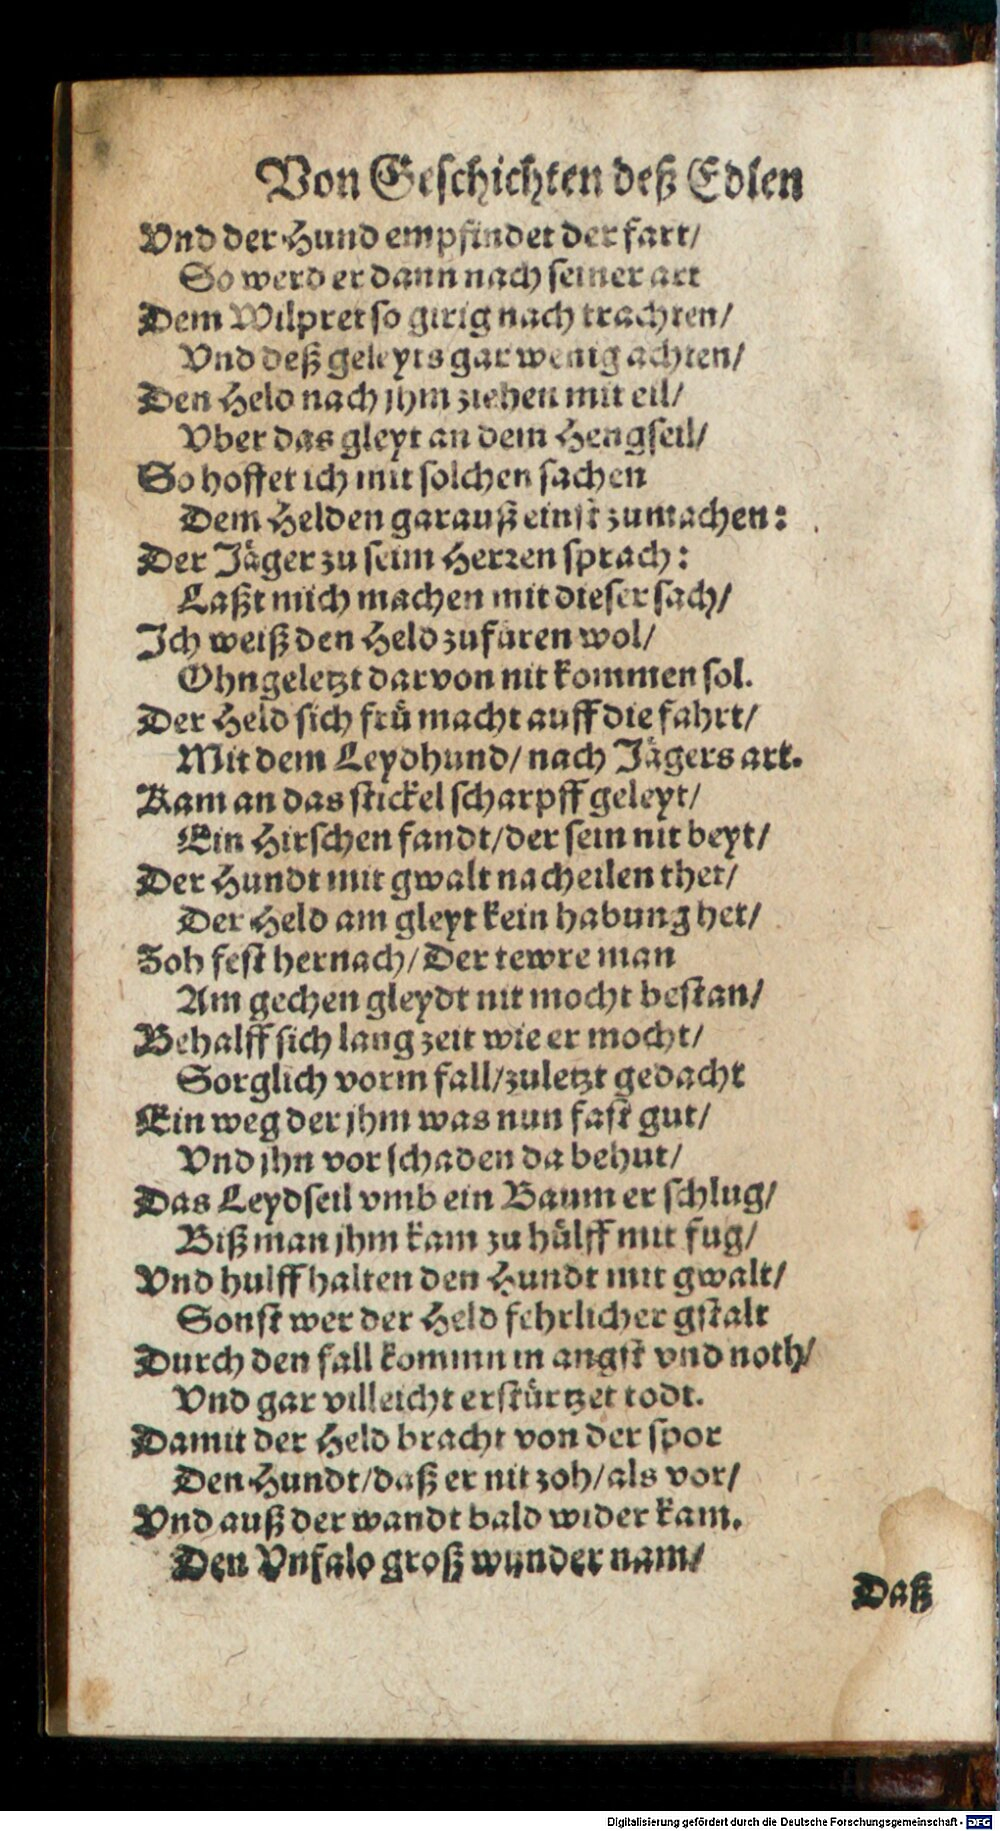 Von Geschichten deß Edlen
Vnd der Hund empfindet der fart/
So werd er dann nach seiner art
Dem Wilpret so girig nach trachten/
Vnd deß geleyts gar wenig achten/
Den Held nach jhm ziehen mit eil/
Vber das gleyt an dem Hengseil/
So hoffet ich mit solchen sachen
Dem Helden garauß einst zumachen:
Der Jäger zu seim Herren sprach:
Laßt mich machen mit dieser sach/
Ich weiß den Held zufüren wol/
Ohngeletzt darvon nit kommen sol.
Der Held sich frü macht auff die fahrt/
Mit dem Leydhund/ nach Jägers art.
Kam an das stickel scharpff geleyt/
Ein Hirschen fandt/ der sein nit beyt/
Der Hundt mit gwalt nacheilen thet/
Der Held am gleyt kein habung het/
Zoh fest hernach/ Der tewre man
Am gechen gleydt nit mocht bestan/
Behalff sich lang zeit wie er mocht/
Sorglich vorm fall/ zuletzt gedacht
Ein weg der jhm was nun fast gut/
Vnd jhn vor schaden da behut/
Das Leydseil vmb ein Baum er schlug/
Biß man jhm kam zu hülff mit fug/
Vnd hulff halten den Hundt mit gwalt/
Sonst wer der Held fehrlicher gstalt
Durch den fall kommn in angst vnd noth/
Vnd gar villeicht erstürtzet todt.
Damit der Held bracht von der spor
Den Hundt/ daß er nit zoh/ als vor/
Vnd auß der wandt bald wider kam.
Den Vnfalo groß wunder nam/
Daß
Digitalisierung gefördert durch die Deutsche Forschungsgemeinschaft - DFG